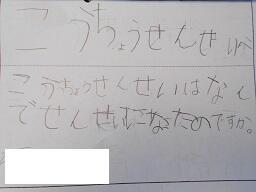 こうちょうせんせいへ
こうちょうせんせいはなん
でせんせいになたのですか。